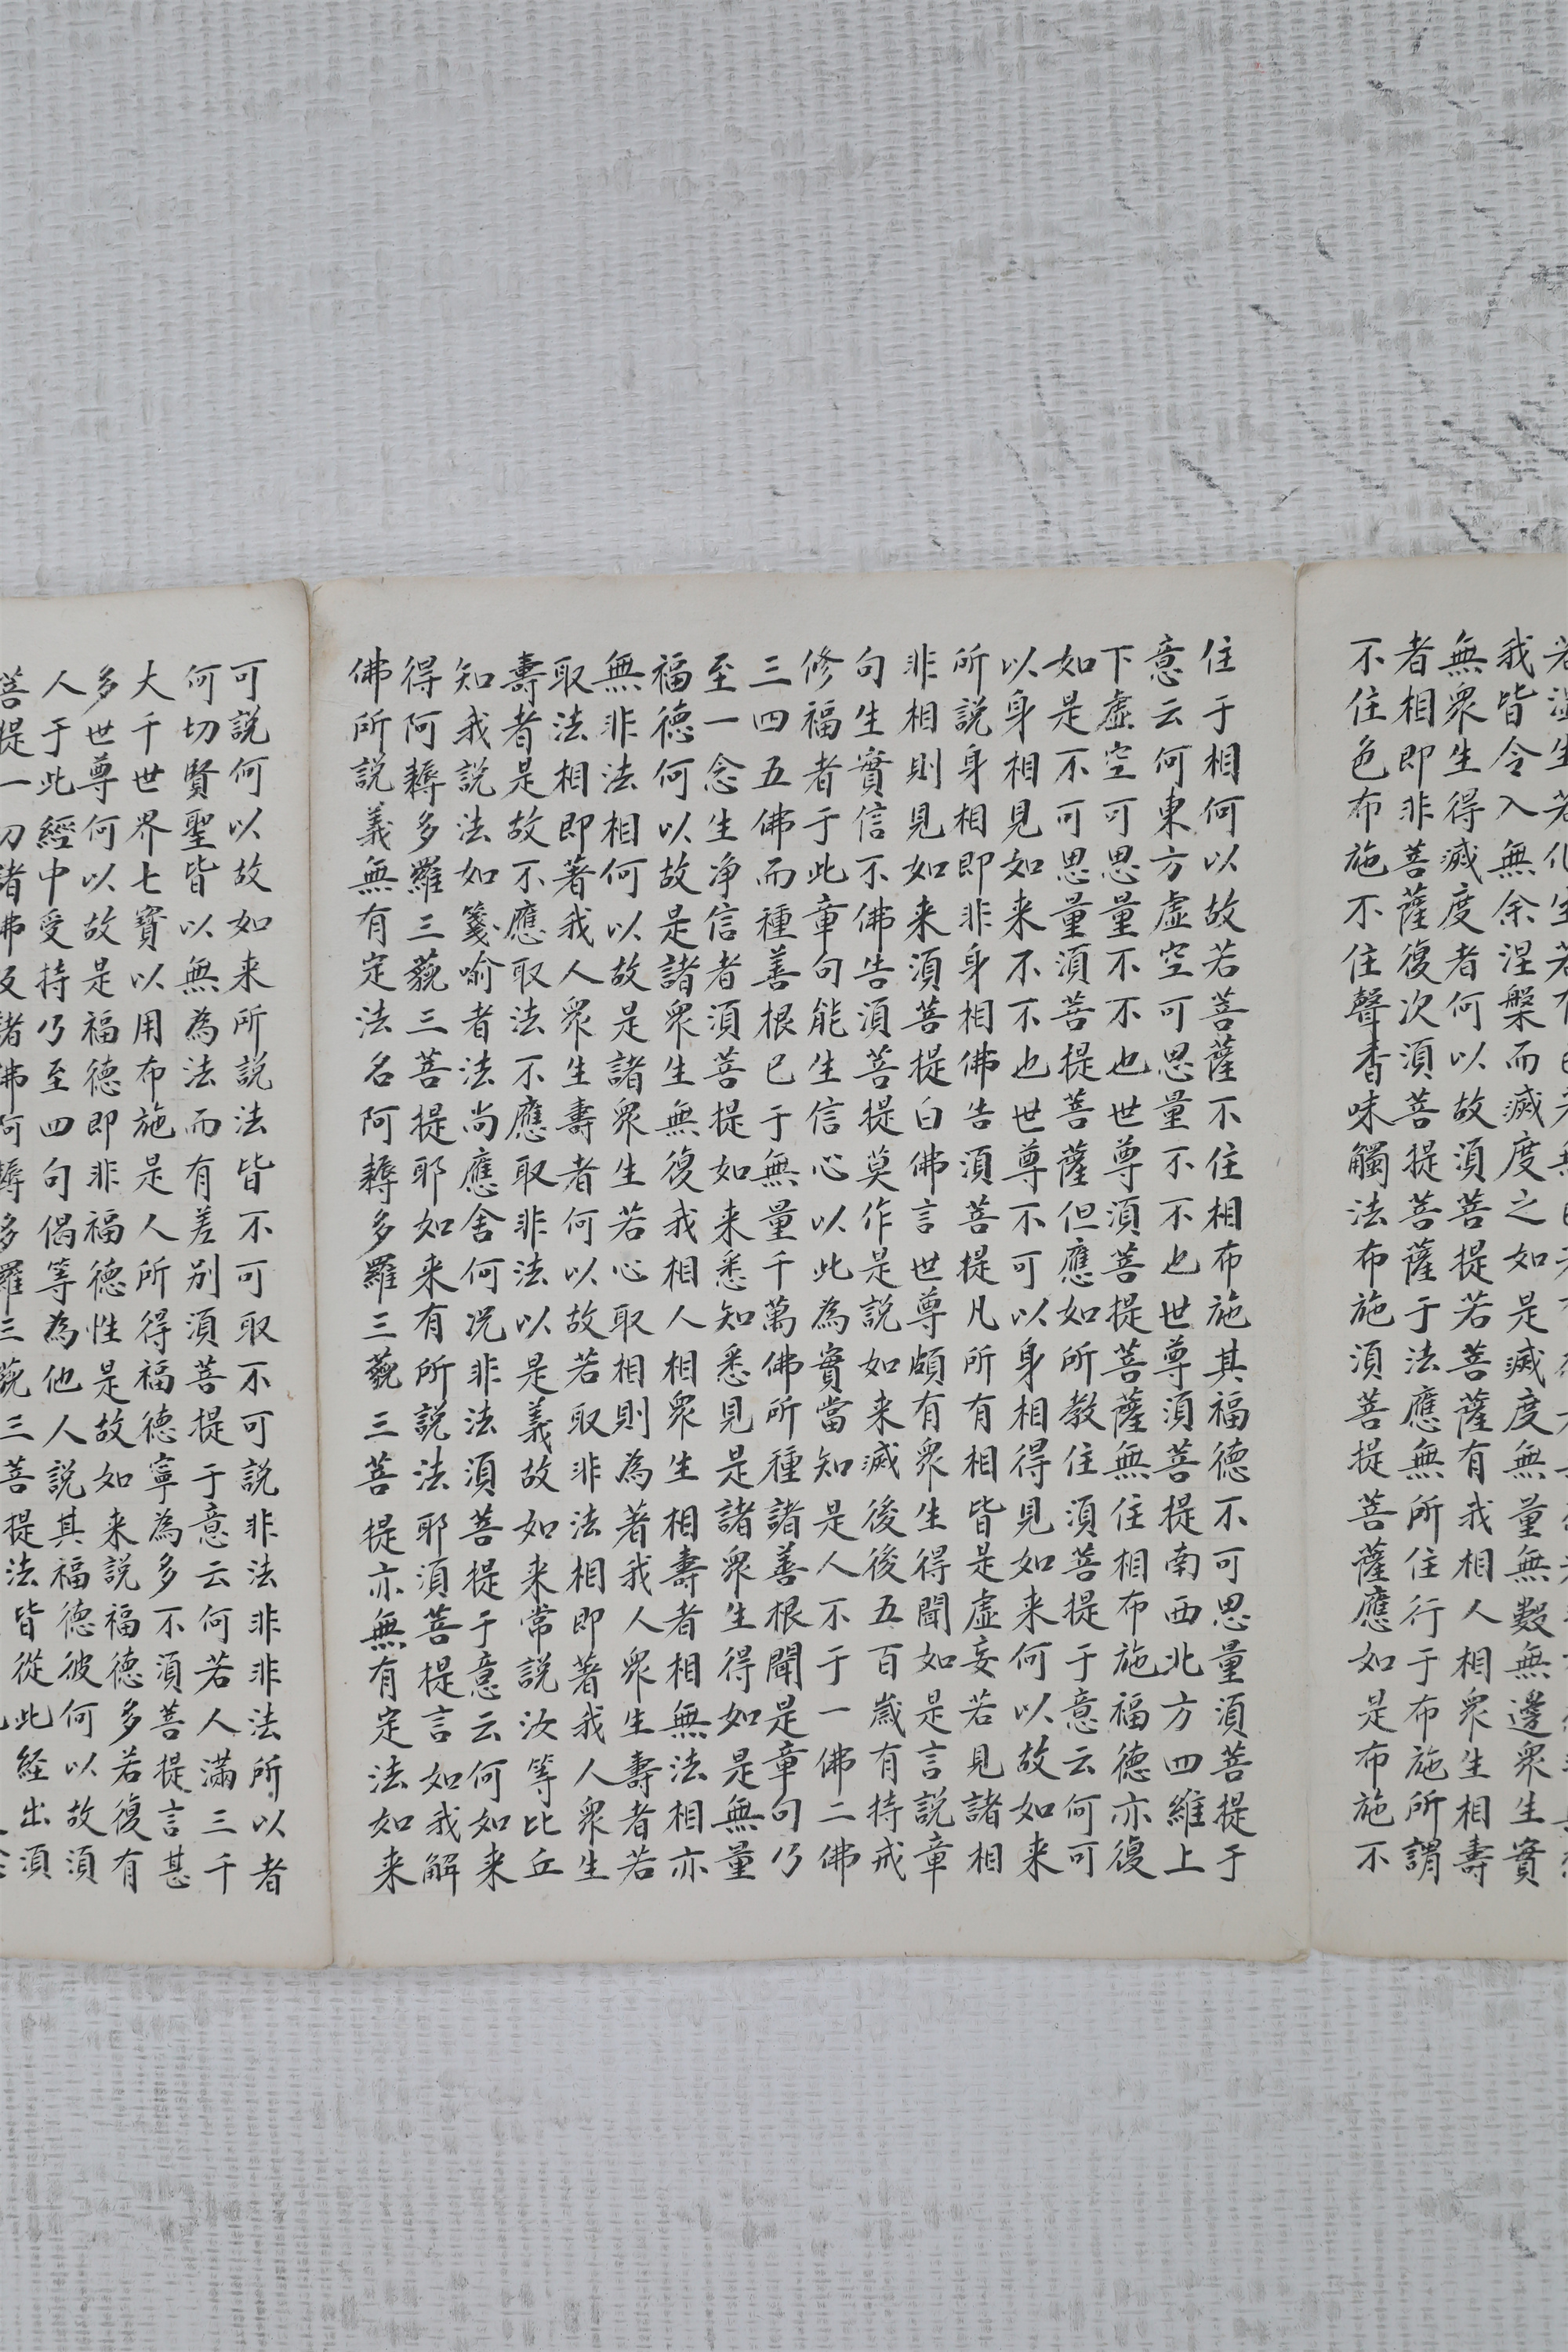 我皆令入無余涅槃而滅度之如是滅度無量無數無邊眾生實
無眾生得滅度者何以故須菩提若菩薩有我相人相眾生相壽
者相即非菩薩復次須菩提菩薩于法應無所住行于布施所謂
不住色布施不住聲香味觸法布施須菩提菩薩應如是布施不
住于相何以故若菩薩不住相布施其福德不可思量須菩提于
意云何東方虛空可思量不不也世尊須菩提南西北方四維上
下虛空可思量不不也世尊須菩提菩薩無住相布施福德亦復
如是不可思量須菩提菩薩但應如所教住須菩提于意云何可
以身相見如来不不也世尊不可以身相得見如来何以故如来
所説身相即非身相佛告須菩提凡所有相皆是虛妄若見諸相
非相則見如来須菩提白佛言世尊頗有眾生得聞如是言説章
句生實信不佛告須菩提莫作是説如来滅後後五百歲有持戒
修福者于此章句能生信心以此為實當知是人不于一佛二佛
三四五佛而種善根已于無量千萬佛所種諸善根聞是章句乃
至一念生净信者須菩提如来悉知悉見是諸眾生得如是無量
福德何以故是諸眾生無復我相人相眾生相壽者相無法相亦
無非法相何以故是諸眾生若心取相則為著我人眾生壽者若
取法相即著我人眾生壽者何以故若取非法相即著我人眾生
壽者是故不應取法不應取非法以是義故如来常説汝等比丘
知我説法如筏喻者法尚應舍何况非法須菩提于意云何如来
得阿耨多羅三藐三菩提耶如来有所説法耶須菩提言如我解
佛所説義無有定法名阿耨多羅三藐三菩提亦無有定法如来
可説何以故如来所説法皆不可取不可説非法非非法所以者
何切賢聖皆以無為法而有差别須菩提于意云何若人滿三千
大千世界七寶以用布施是人所得福德寧為多不須菩提言甚
多世尊何以故是福德即非福德性是故如来説福德多若復有
人于此經中受持乃至四句偈等為他人説其福德彼何以故須
菩提一切諸佛及諸佛阿耨多羅三藐三菩提法皆從此経出須